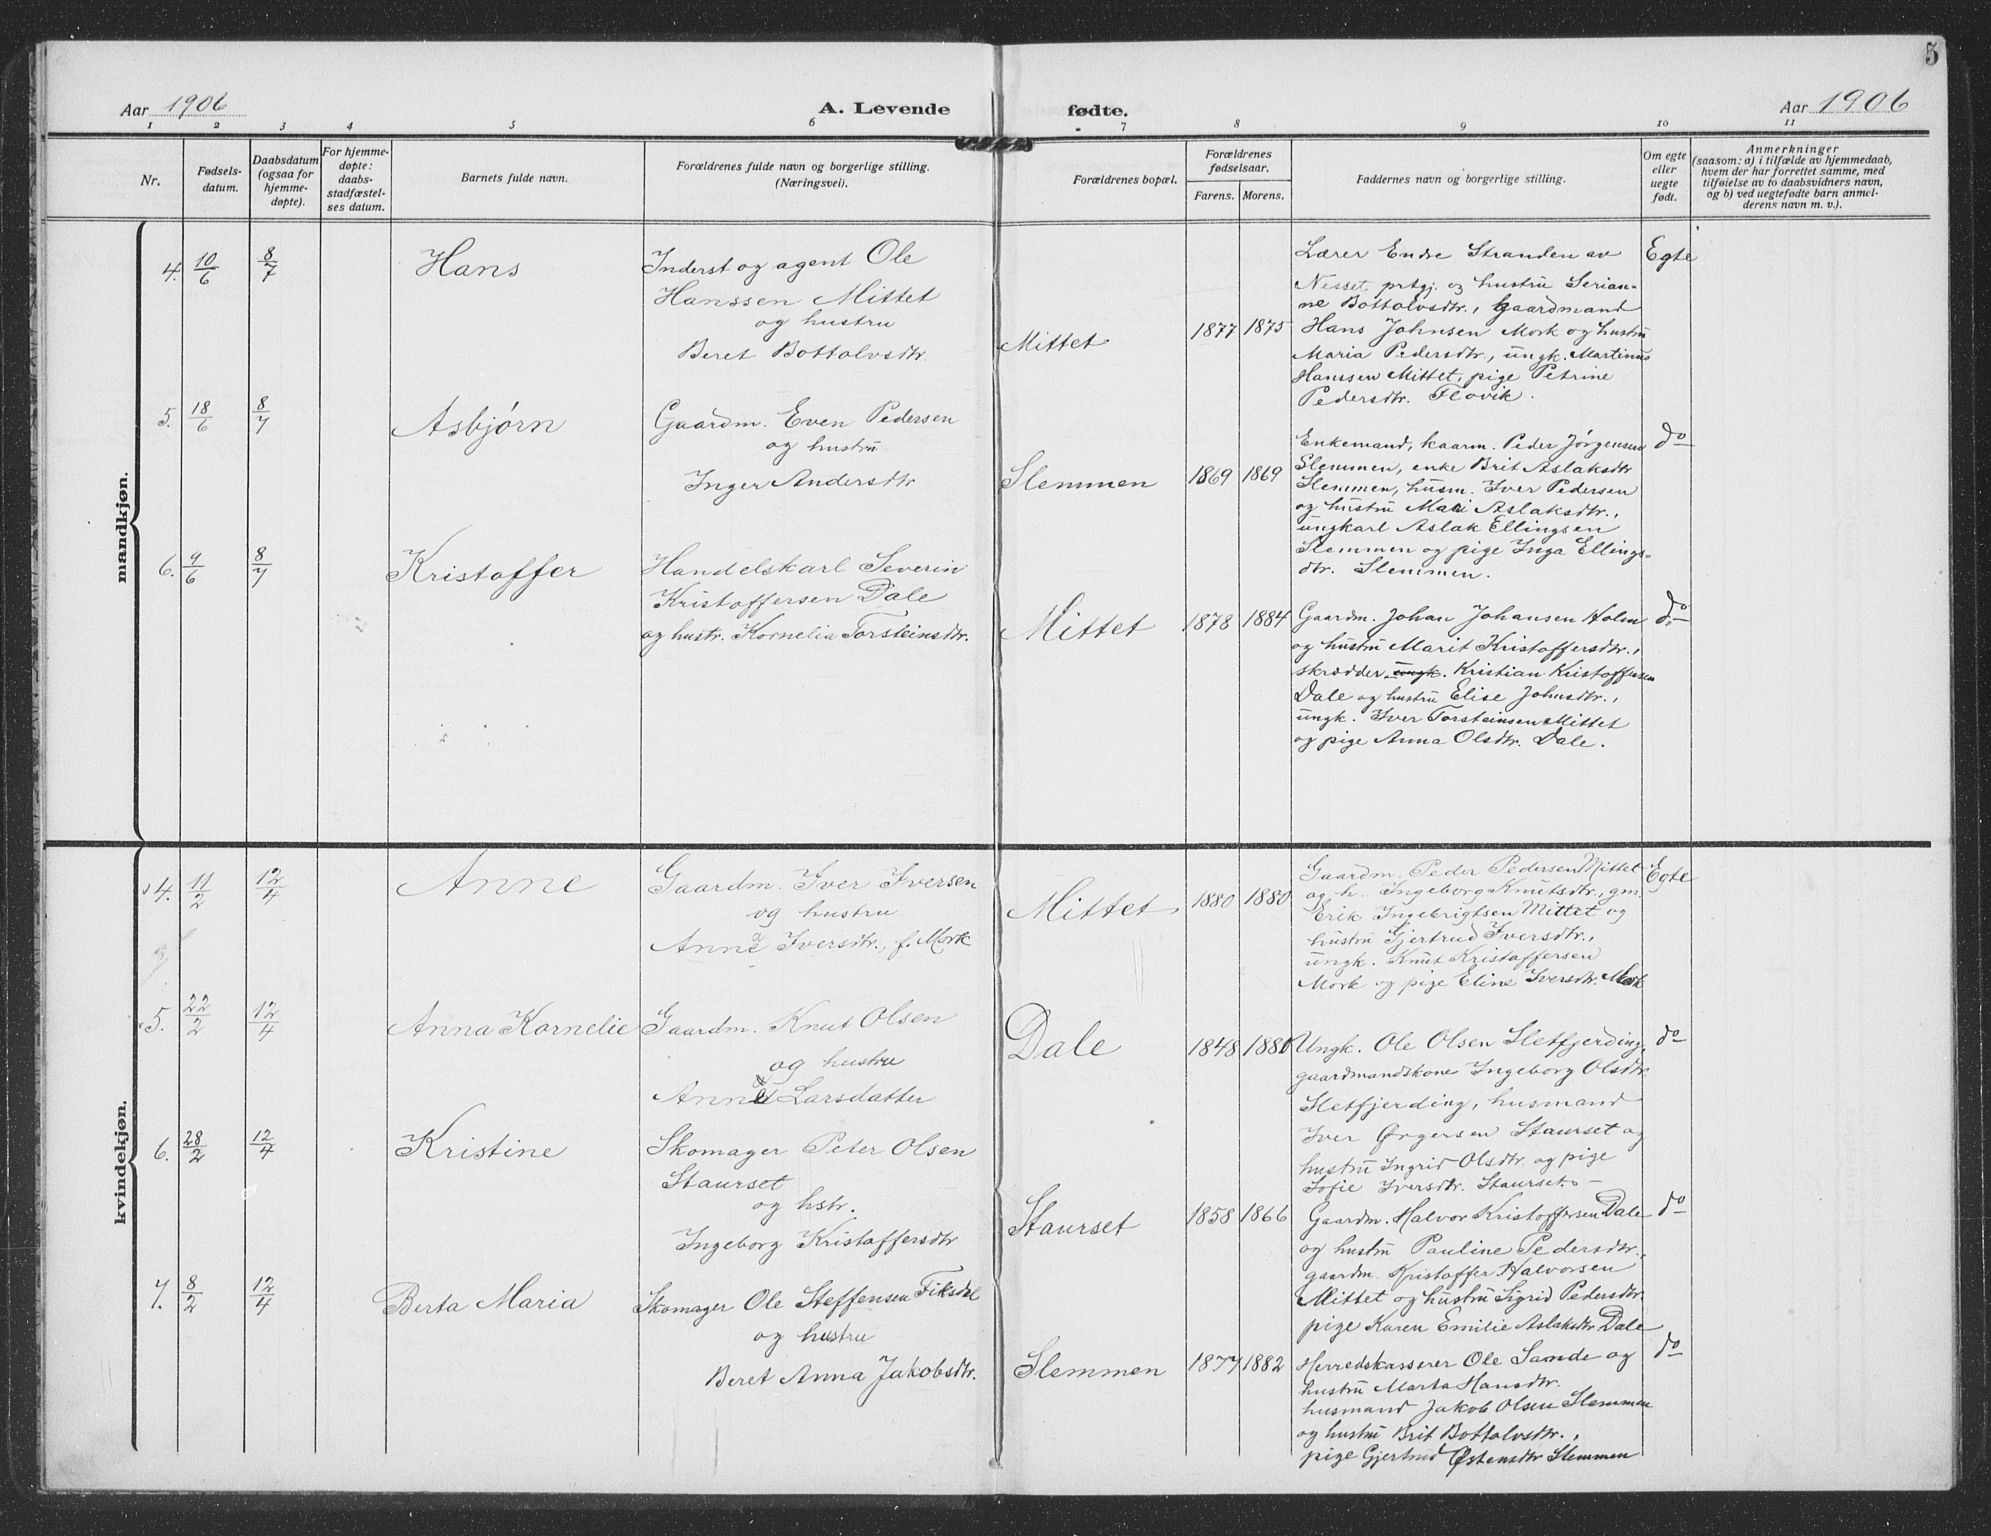 5
Aar 1906
A. Levende fødte.
Aar 1906
1 2 3 4 5 6 7 8 9 10 11
Nr.
Fødsels-
datum.
Daabsdatum
(ogsaa for
hjemme-
døpte).
For hjemme-
døpte:
daabs-
stadfæstel-
ses datum.
Barnets fulde navn.
Forældrenes fulde navn og borgerlige stilling.
(Næringsvei).
Forældrenes bopæl.
Forældrenes
fødselsaar.
Farens. Morens.
Faddernes navn og borgerlige stilling.
Om egte
eller
uegte
født.
Anmerkninger
(saasom: a) i tilfælde av hjemmedaab,
hvem der har forrettet samme, med
tilføielse av to daabsvidners navn,
og b) ved uegtefødte barn anmel-
derens navn m. v.).
mandkjøn.
4. 10/6 8/7 Hans
Inderst og agent Ole
Hanssen Mittet
og hustru
Beret Bottolvsdtr.
Mittet 1877 1875
Lærer Endre Stranden av
Nesset prtgj. og hustru Serian-
ne Bottolvsdtr., gaardmand
Hans Johnsen Mork og hustru
Maria Pedersdtr., ungk. Martinus
Hanssen Mittet, pige Petrine
Pedersdtr. Flovik.
Egte
5. 18/6 8/7 Asbjørn
Gaardm. Even Pedersen
og hustru
Inger Andersdtr
Slemmen 1869 1869
Enkemand, kaarm. Peder Jørgensen
Slemmen, enke Brit Aslaksdtr
Slemmen, husm. Iver Pedersen
og hustru Mari Aslaksdtr.,
ungkarl Aslak Ellingsen
Slemmen og pige Inga Ellings-
dtr. Slemmen.
do
6. 9/6 8/7 Kristoffer
Handelskarl Severin
Kristoffersen Dale
og hustr. Kornelia Torsteinsdtr.
Mittet 1878 1884
Gaardm. Johan Johansen Holm
og hustru Marit Kristoffersdtr.,
skrædder, ungk. Kristian Kristoffersen
Dale og hustru Elise Johnsdtr.,
ungk. Iver Torsteinsen Mittet
og pige Anna Olsdtr. Dale.
do
kvindekjøn.
4. 11/2 12/4 Anne
Gaardm. Iver Iversen
og hustru
Anne Iversdtr., f. Mork
Mittet 1880 1880
Gaardm. Peder Pedersen Mittet
og h. Ingeborg Knutsdtr., gm.
Erik Ingebrigtsen Mittet og
hustru Gjertrud Iversdtr.,
ungk. Knut Kristoffersen
Mork og pige Eline Iversdtr. Mork
Egte
5. 22/2 12/4 Anna Kornelie
Gaardm. Knut Olsen
og hustru
Anne Larsdatter
Dale 1848 1880
Ungk. Ole Olsen Sletfjerding,
gaardmandskone Ingeborg Olsdtr.
Sletfjerding, husmand
Iver Ørgersen Staurset og
hustru Ingrid Olsdtr. og pige
Sofie Iversdtr. Staurset.
do
6. 28/2 12/4 Kristine
Skomager Peter Olsen
Staurset
og hstr.
Ingeborg Kristoffersdtr
Staurset 1858 1866
Gaardm. Halvor Kristoffersen Dale
og hustru Pauline Pedersdtr.,
gaardm. Kristoffer Halvorsen
Mittet og hustru Sigrid Pedersdtr.
pige Karen Emilie Aslaksdtr Dale
do
7. 8/2 12/4 Berta Maria
Skomager Ole Steffensen Fiksdal
og hustru
Beret Anna Jakobsdtr.
Slemmen 1877 1882
Herredskasserer Ole Sande og
hustru Marta Hansdtr.
husmand Jakob Olsen Slemmen
og hustru Brit Bottolvsdtr.,
pige Gjertrud Østensdtr Slemmen
do